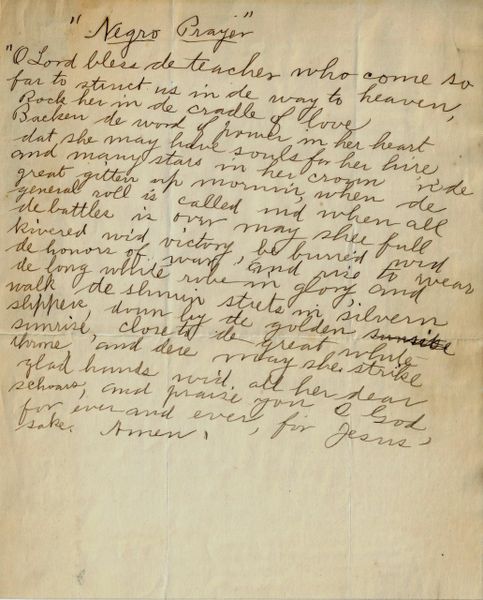 "Negro Prayer"
"O Lord bless de teacher who come so
far to struct us in de way to heaven,
Rock her in de cradle of love
Backen de word of power in her heart
dat she may have souls for her hire,
and many stars in her crown in de
great gitten up mornin, when de
general roll is called and when all
de battles is over may shee full
kivered wid victory, be buried wid
de honors of war, and rise to wear
de long white robe in glory and
walk de shinin streets in silvern
slippers, down by de golden sunsite
sunrise, close to de great white
throne and dere may she strike
glad hands wid all her dear
scholars, and praise you O God
for ever and ever, for Jesus'
sake. Amen.